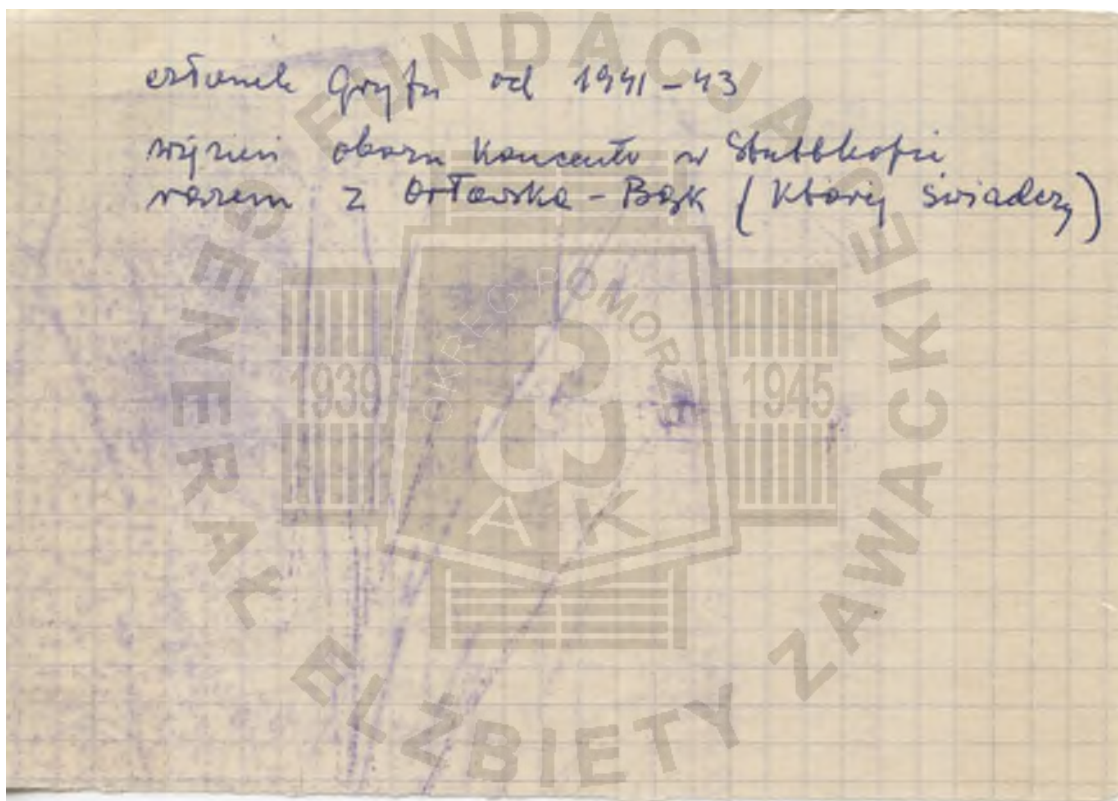 członek Gryfu od 1941-43
więzień obozu Koncentr w Stutthofie
razem z Orłowska - Bąk (której świadczy)
FUNDACJA
GENERAŁ ELŻBIETY ZAWACKIEJ
OKRĘG POMORZE
1939
1945
AK